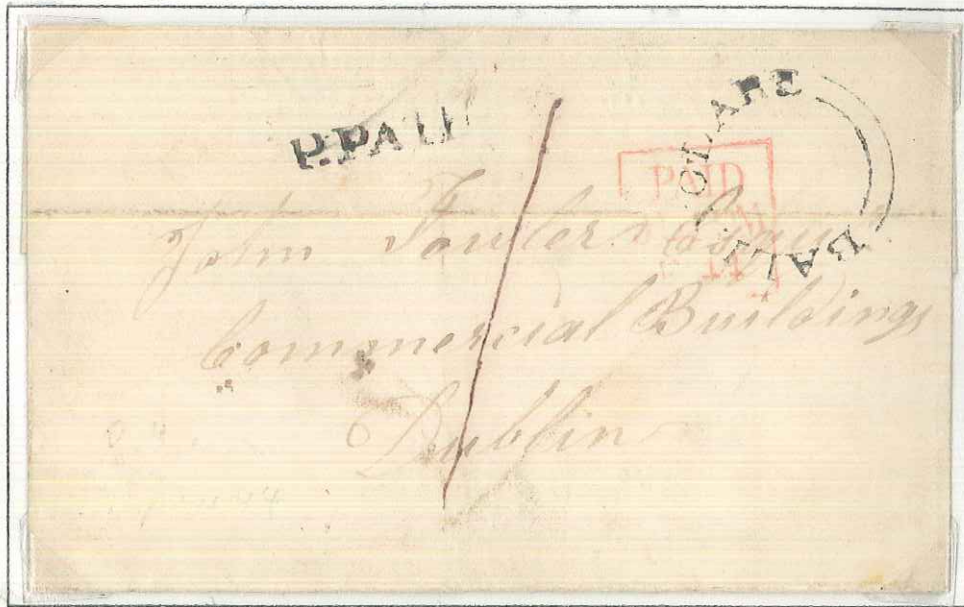 P.PAID
BALLYCLARE
PAID
14
John Fowler Esqr
Commercial Buildings
Dublin